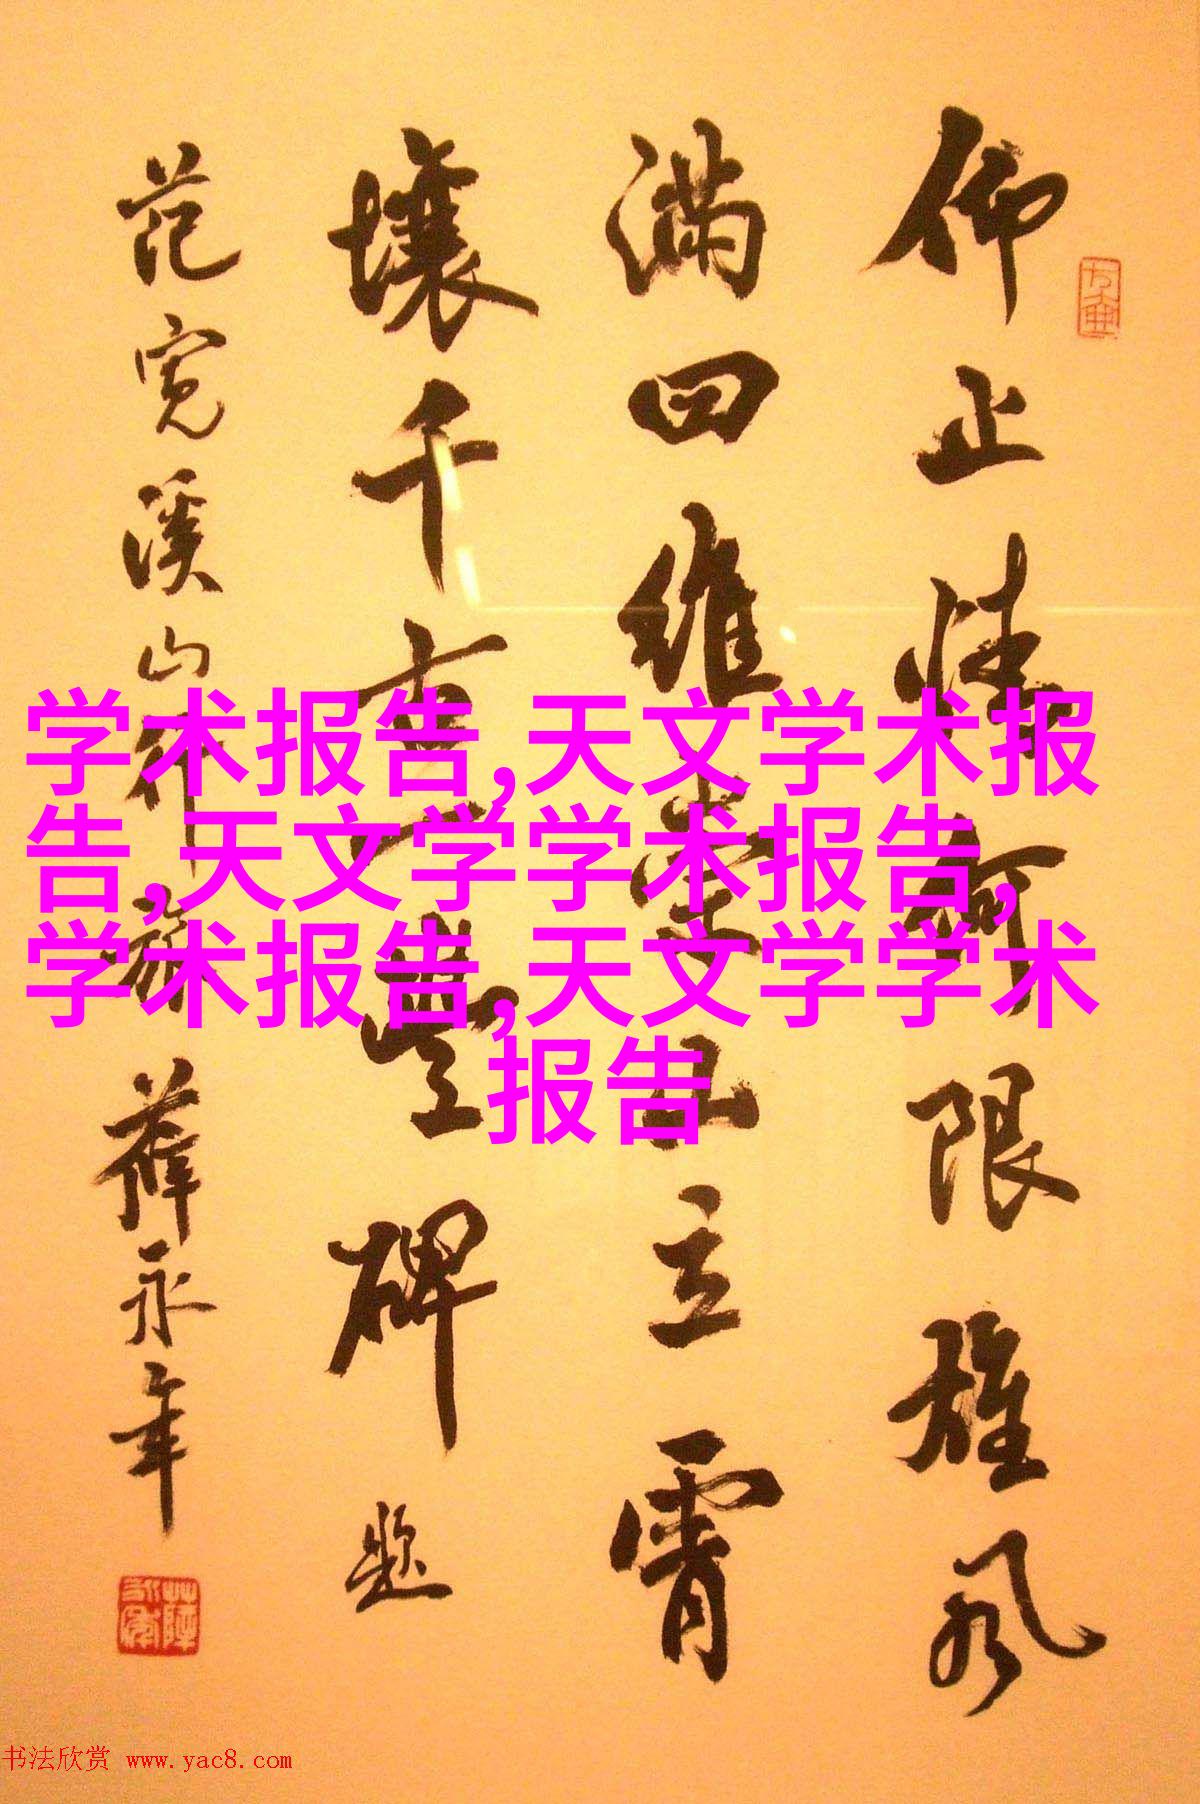 仰止情何限雄风
满四维崇立霄
壤千古一豐碑题
范宽溪山行旅 薛永年
学术报告,天文学术报
告,天文学学术报告,
学术报告,天文学学术
报告
书法欣赏 www.yac8.com